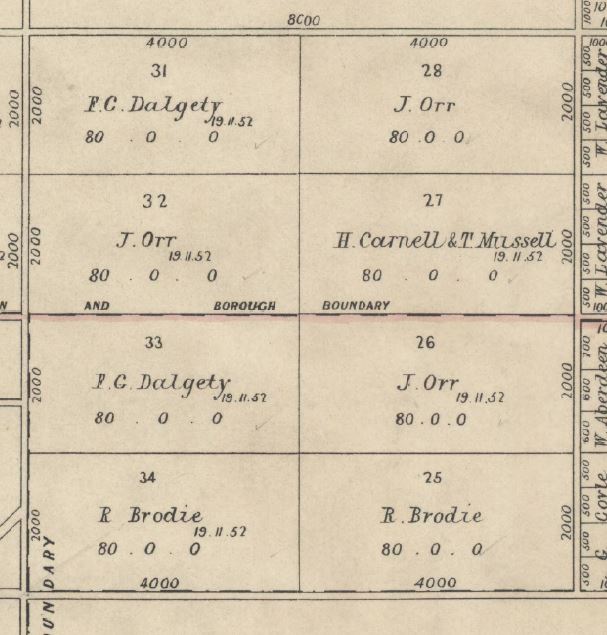 8000
4000
4000
31
28
F.C. Dalgety
19.11.52
80 . 0 . 0
J. Orr
80 . 0 . 0
2000
2000
2000
32
27
J. Orr
19.11.52
80 . 0 . 0
H. Carnell & T. Mussell
19.11.52
80 . 0 . 0
2000
2000
2000
AND BOROUGH BOUNDARY
33
26
F.G. Dalgety
19.11.52
80 . 0 . 0
J. Orr
19.11.52
80 . 0 . 0
2000
2000
34
25
R Brodie
19.11.52
80 . 0 . 0
R. Brodie
80 . 0 . 0
2000
2000
4000
4000
W. Lavender
W. Lavender
W. Aberdeen
G Gorle
500
500
500
500
500
500
500
500
700
600
600
500
500
500
500